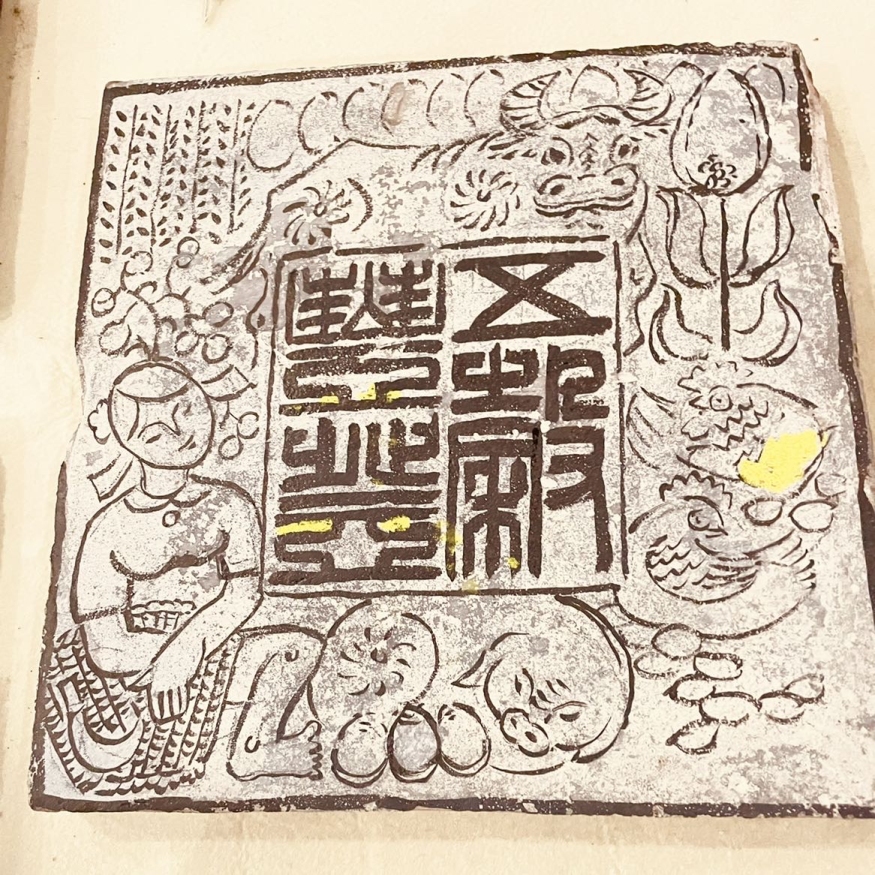 五穀
豐登